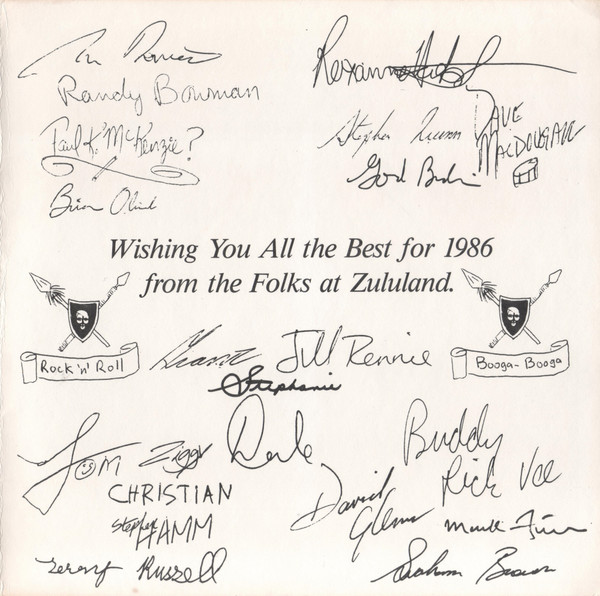 Randy Bowman
Paul K. "McKenzie?
Brian
Roxanne
Stephen Quinn
DAVE
MACDOUGALL
Gord
Wishing You All the Best for 1986
from the Folks at Zululand.
Rock 'n' Roll
Booga-Booga
Grant
Jill Rennie
Stephanie
Tom
Ziggy
Dale
CHRISTIAN
Stephen
HAMM
Jeremy Russell
Buddy
Rick Vee
David
Glenn
Graham Brown